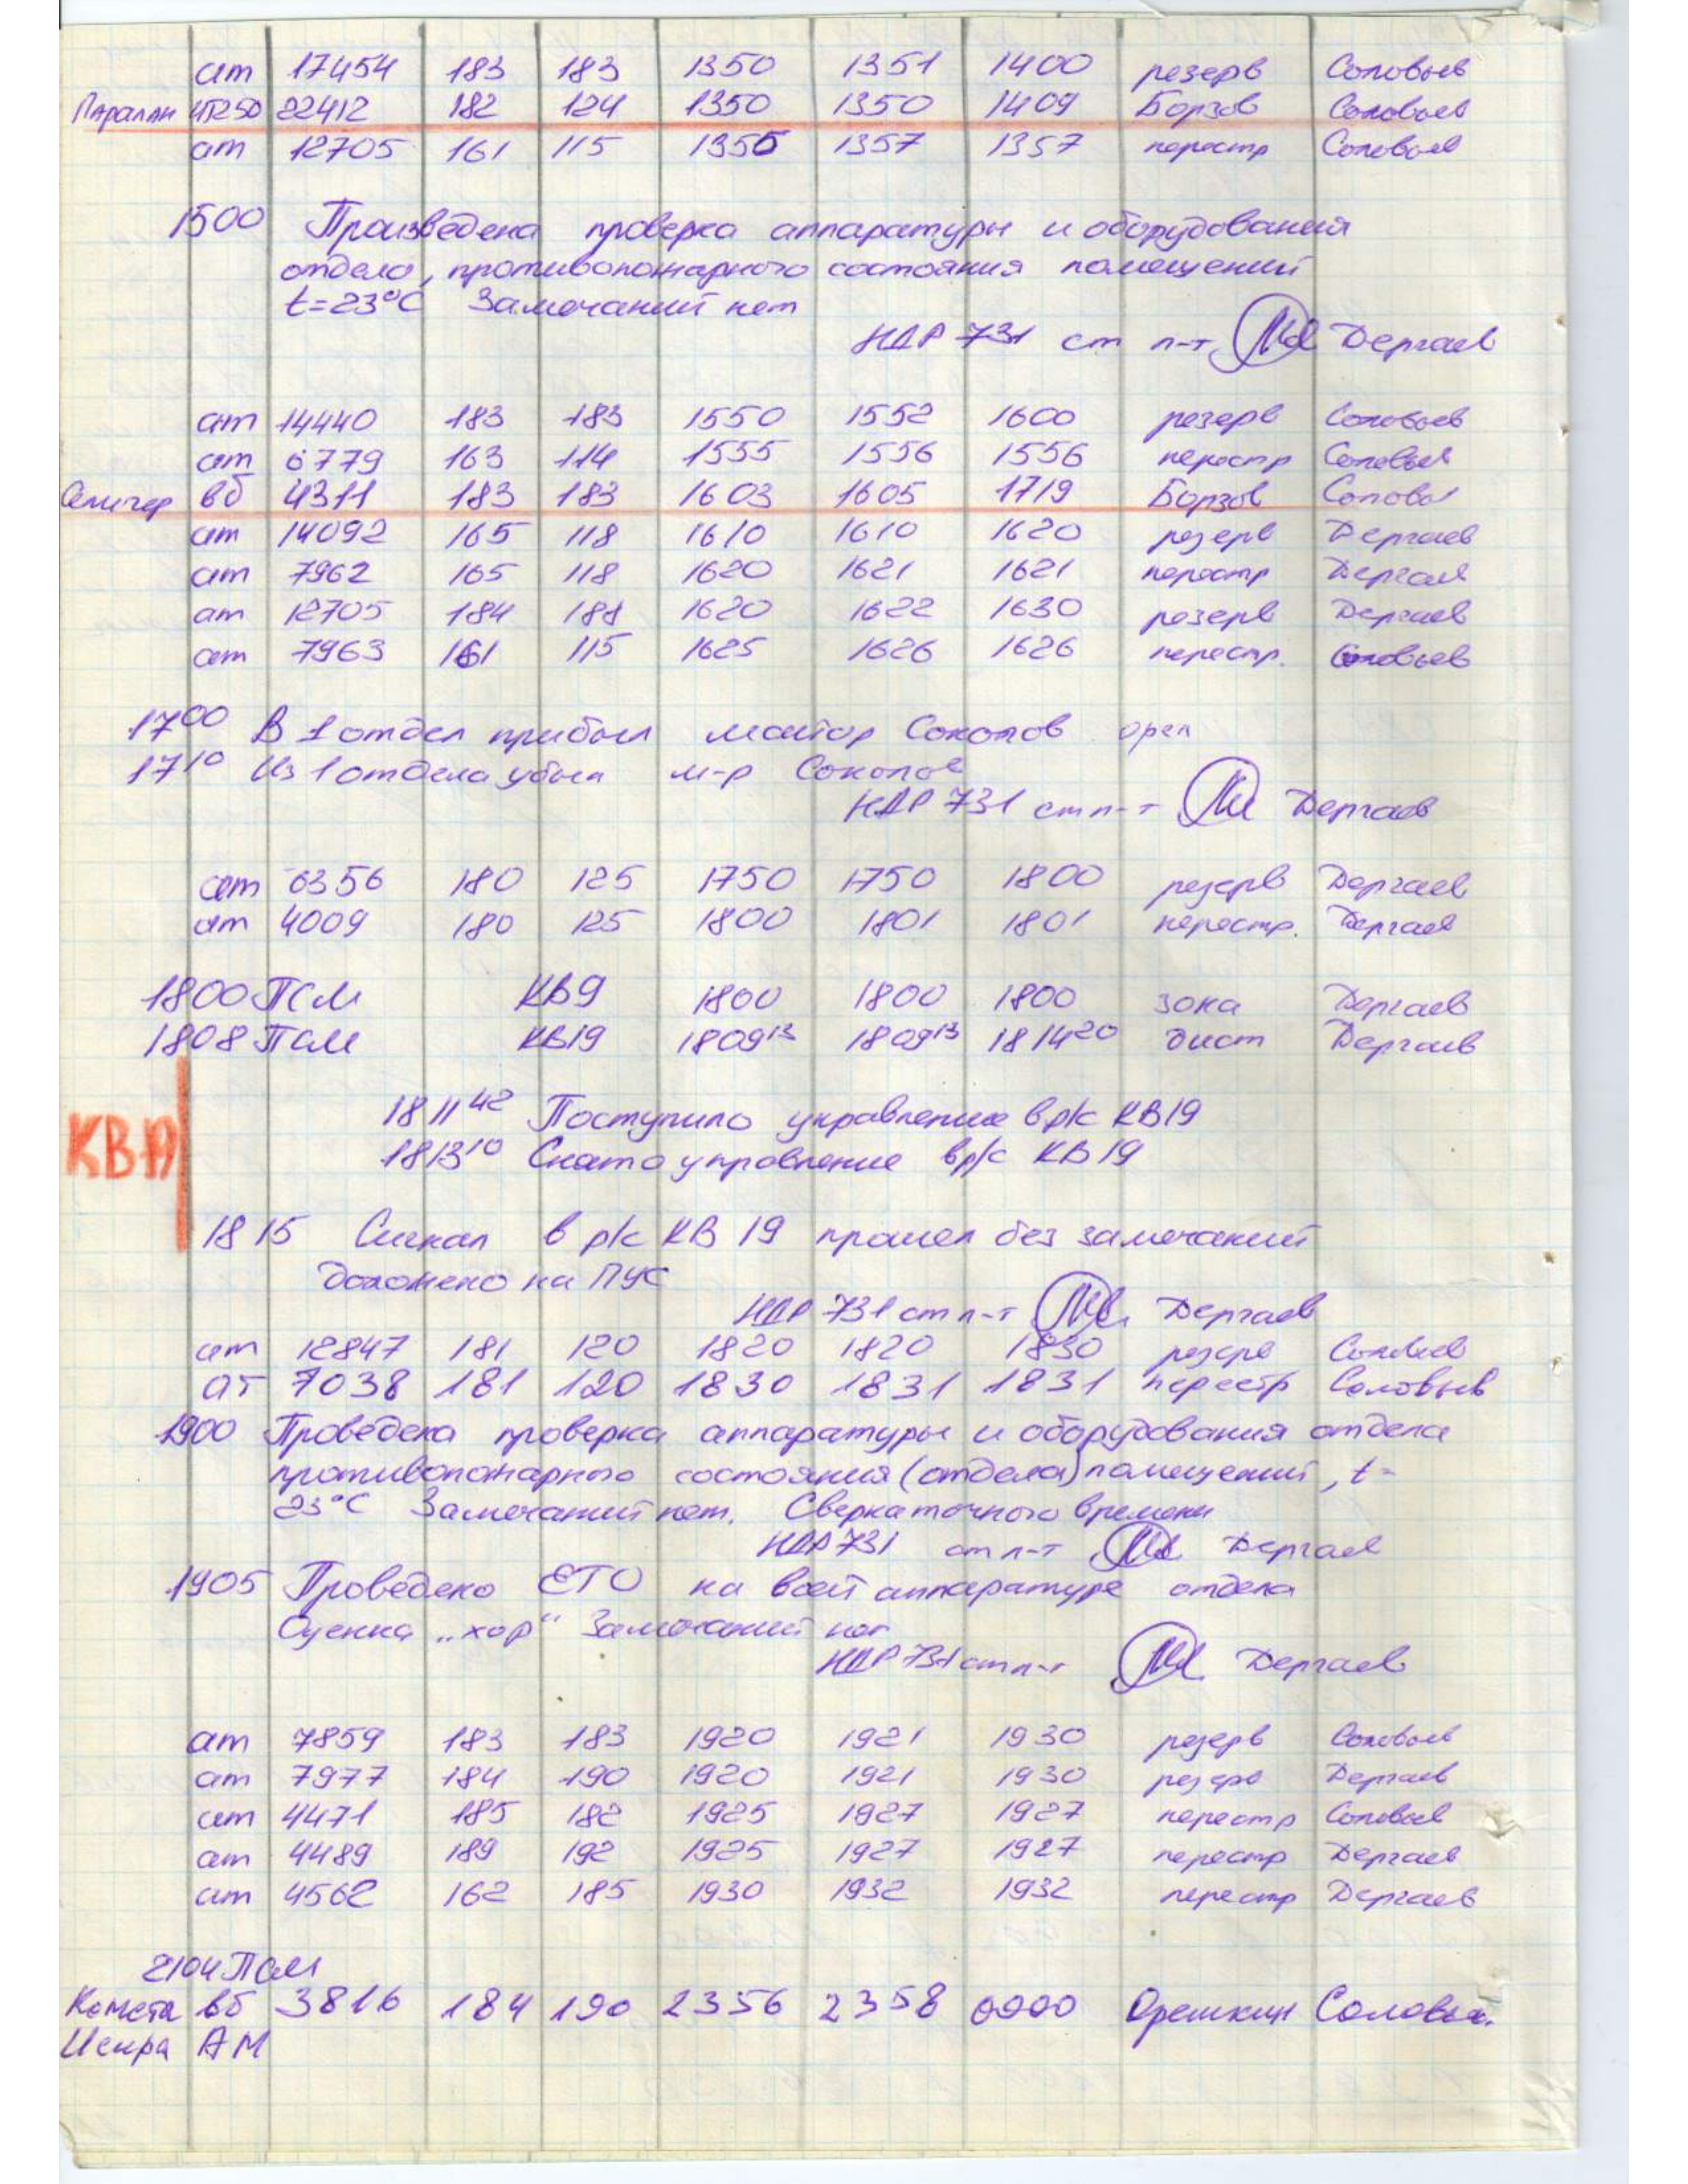 ат 17454 183 183 1350 1351 1400 резерв Соловьев
22412 182 124 1350 1350 1409 Борзов Соловьев
ат 12705 161 115 1356 1357 1357 перестр Соловьев
1500 Произведена проверка аппаратуры и оборудования
отдела, противопожарного состояния помещений
t=23°C Замечаний нет
НДР 731 ст л-т Дергаев
ат 14440 183 183 1550 1552 1600 резерв Соловьев
ат 6779 163 114 1555 1556 1556 перестр Соловьев
Селигер вб 4311 183 183 1603 1605 1719 Борзов Соловьев
ат 14092 165 118 1610 1610 1620 резерв Дергаев
ат 7962 165 118 1620 1621 1621 перестр Дергаев
ат 12705 184 188 1620 1622 1630 резерв Дергаев
ат 7963 161 115 1625 1626 1626 перестр. Соловьев
17⁰⁰ В 1 отдел прибыл майор Соколов
17¹⁰ Из 1 отдела убыл м-р Соколов
НДР 731 ст л-т Дергаев
ат 6356 180 125 1750 1750 1800 резерв Дергаев
ат 4009 180 125 1800 1801 1801 перестр. Дергаев
1800 ПСМ КВ9 1800 1800 1800 зона Дергаев
1808 ПСМ КВ19 1809¹³ 1809¹³ 1814²⁰ дист Дергаев
1811⁴² Поступило управление в р/с КВ19
КВ
1813¹⁰ Снято управление в р/с КВ19
1815 Сигнал в р/с КВ 19 прошел без замечаний
доложено на ПУС
НДР 731 ст л-т Дергаев
ат 12847 181 120 1820 1820 1830 резерв Соловьев
ат 7038 181 120 1830 1831 1831 перестр Соловьев
1900 Проведена проверка аппаратуры и оборудования отдела
противопожарного состояния (отдела) помещений, t=
23°C Замечаний нет. Сверка точного времени
НДР 731 ст л-т Дергаев
1905 Проведено ЕТО на всей аппаратуре отдела
Оценка „хор“ Замечаний нет
НДР 731 ст л-т Дергаев
ат 7859 183 183 1920 1921 1930 резерв Соловьев
ат 7977 184 190 1920 1921 1930 резерв Дергаев
ат 4471 185 182 1925 1927 1927 перестр Соловьев
ат 4489 189 192 1925 1927 1927 перестр Дергаев
ат 4562 162 185 1930 1932 1932 перестр Дергаев
2104 ПСМ
Комета вб 3816 184 190 2356 2358 0000 Орешкин Соловьев.
Искра АМ